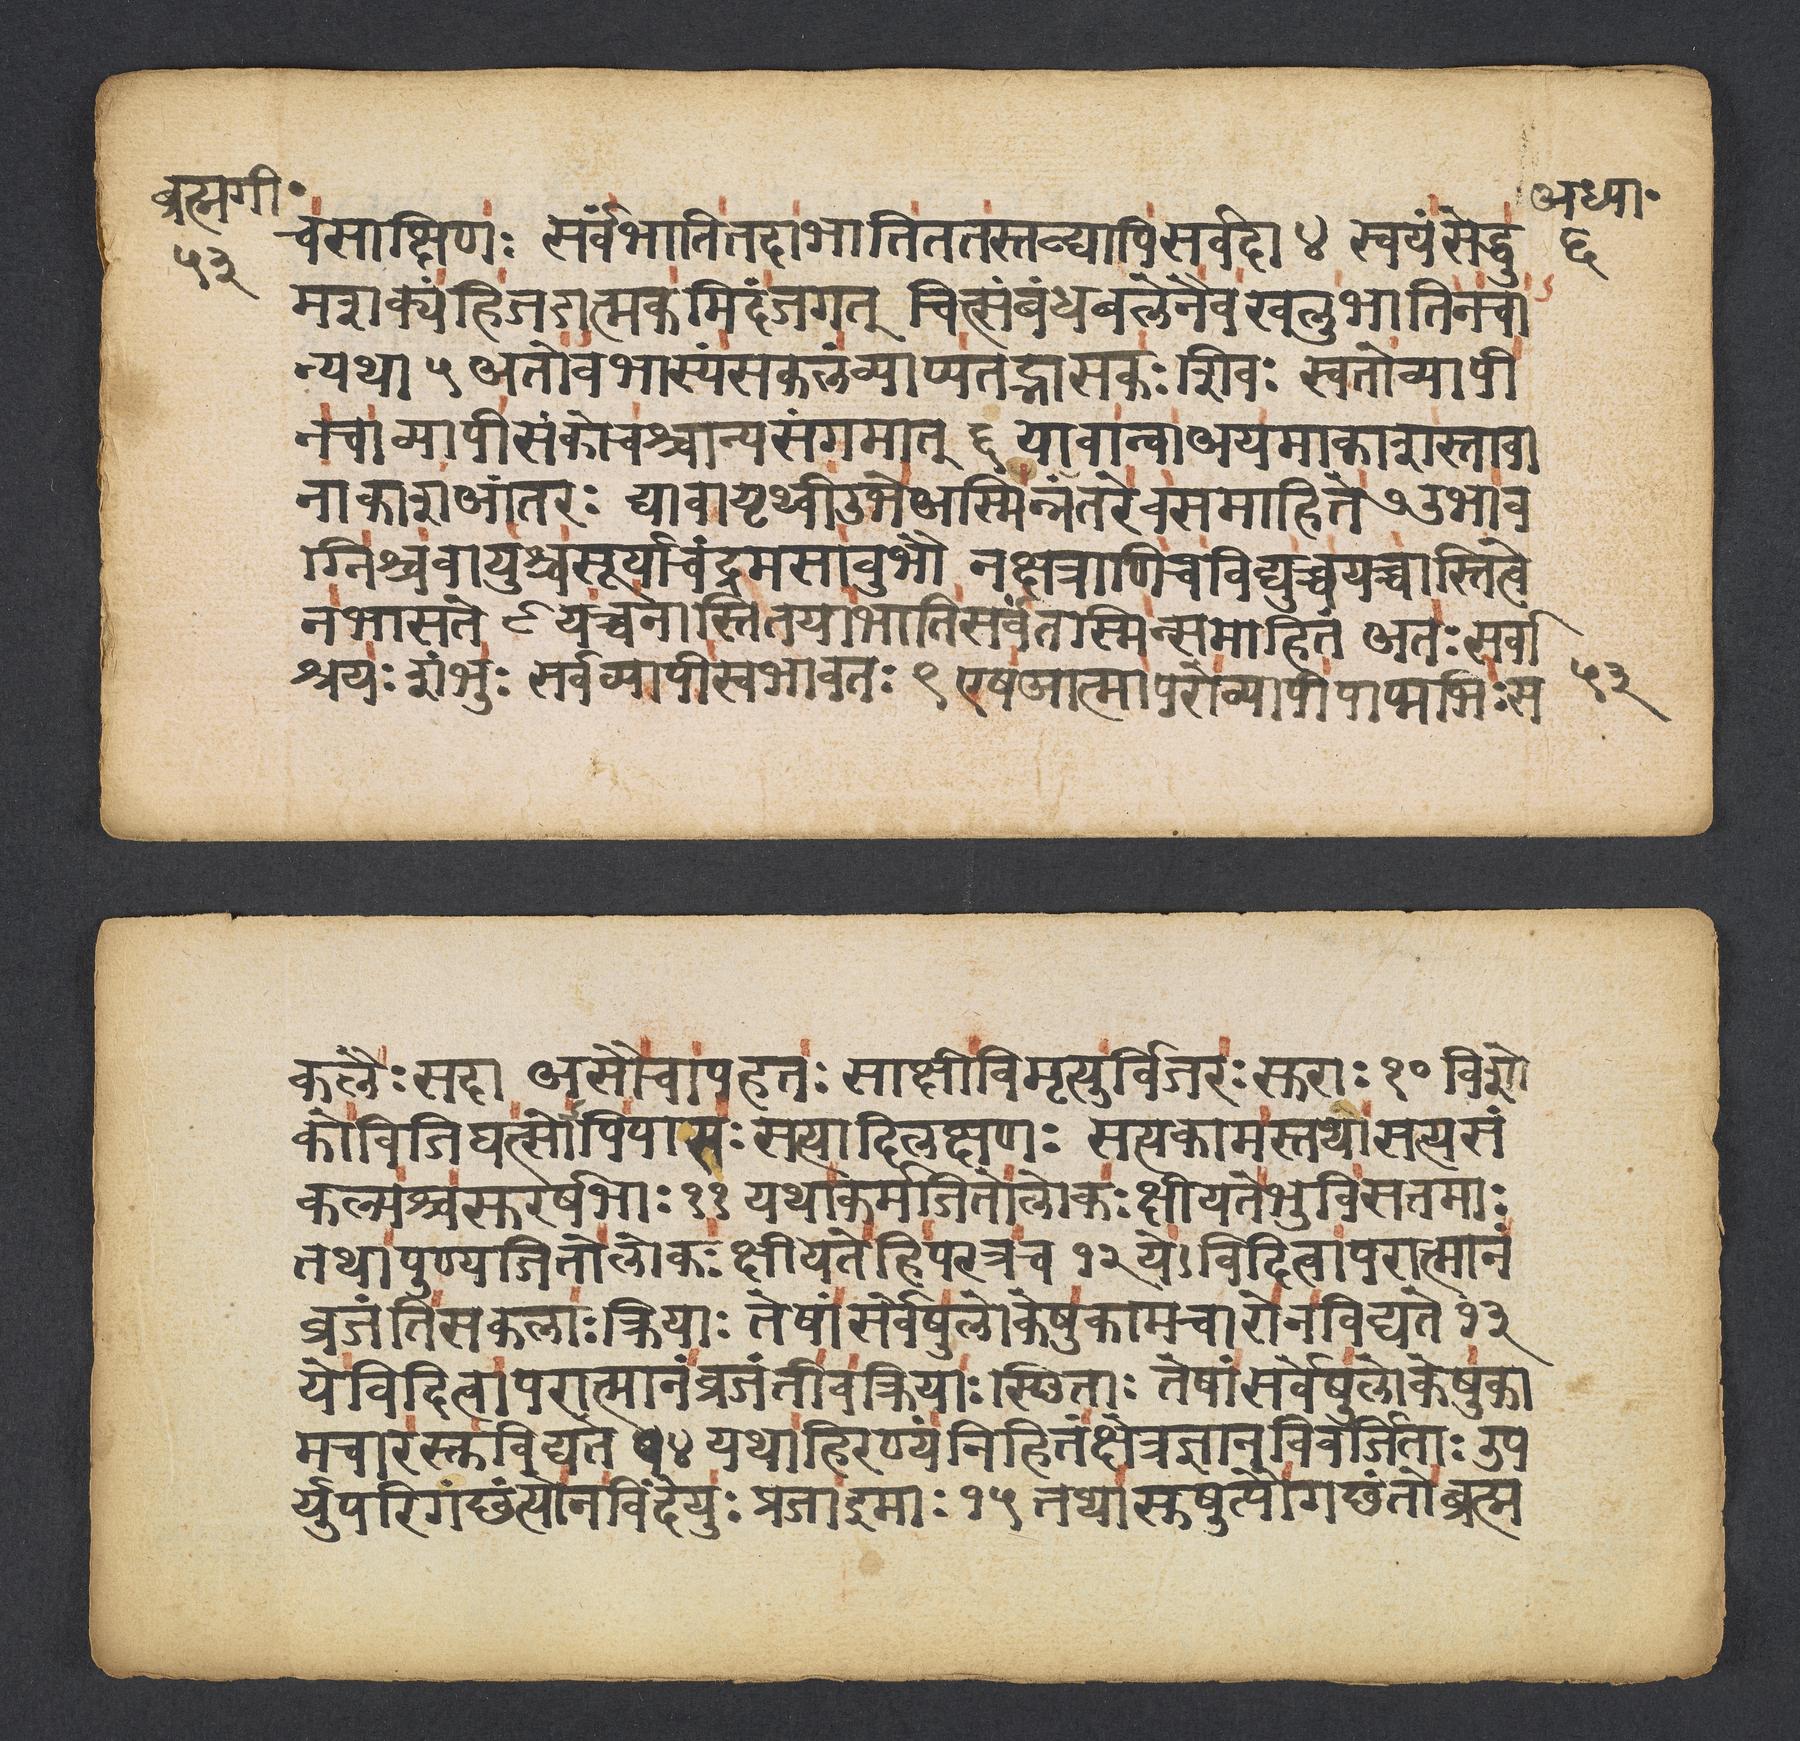 ब्रह्मगी॰
५३
अध्या॰
६
चसाक्षिणः सर्वंभातितदाभातिततस्तद्व्यापिसर्वदा ४ स्वयंसेद्धु
मशक्यंहिजगत्मकमिदंजगत् चित्संबंधबलेनैवखलुभातिनचा
न्यथा ५ अतोवभास्यंसकलंव्याप्यतद्भासकः शिवः स्वतोव्यापी
नचाव्यापीसंकोचश्चान्यसंगमात् ६ यावान्वाअयमाकाशस्तावा
नाकाशआंतरः द्यावापृथ्वीउभेअस्मिन्नंतरेवसमाहिते ७ उभाव
ग्निश्चवायुश्चसूर्याचंद्रमसावुभौ नक्षत्राणिचविद्युच्चयच्चास्तित्वे
नभासते ८ यच्चनास्तितयाभातिसर्वंतस्मिन्समाहितं अतःसर्वा
श्रयः शंभुः सर्वव्यापीस्वभावतः ९ एषआत्मापरोव्यापीपाप्मभिःस
५३
कलैः सदा असौचापहतः साक्षीविमृत्युर्विजरः स्कराः १० विशो
कोविजिघत्सोपिपासः सत्यादिलक्षणः सत्यकामस्तथासत्यसं
कल्पश्चस्करर्षभाः ११ यथाकर्मजितोलोकः क्षीयतेभुविसतमाः
तथापुण्यजितोलोकः क्षीयतेहिपरत्रच १२ येऽविदित्वापरात्मानं
व्रजंतिसकलाः क्रियाः तेषांसर्वेषुलोकेषुकामचारोनविद्यते १३
येविदित्वापरात्मानंव्रजंतीवक्रियाः स्थिताः तेषांसर्वेषुलोकेषुका
मचारस्तुविद्यते १४ यथाहिरण्यंनिहितंक्षेत्रज्ञानविवर्जिताः उप
र्युपरिगंछंत्योनविंदेयुः प्रजाइमाः १५ तथास्कषुप्तौगछंतोब्रह्म